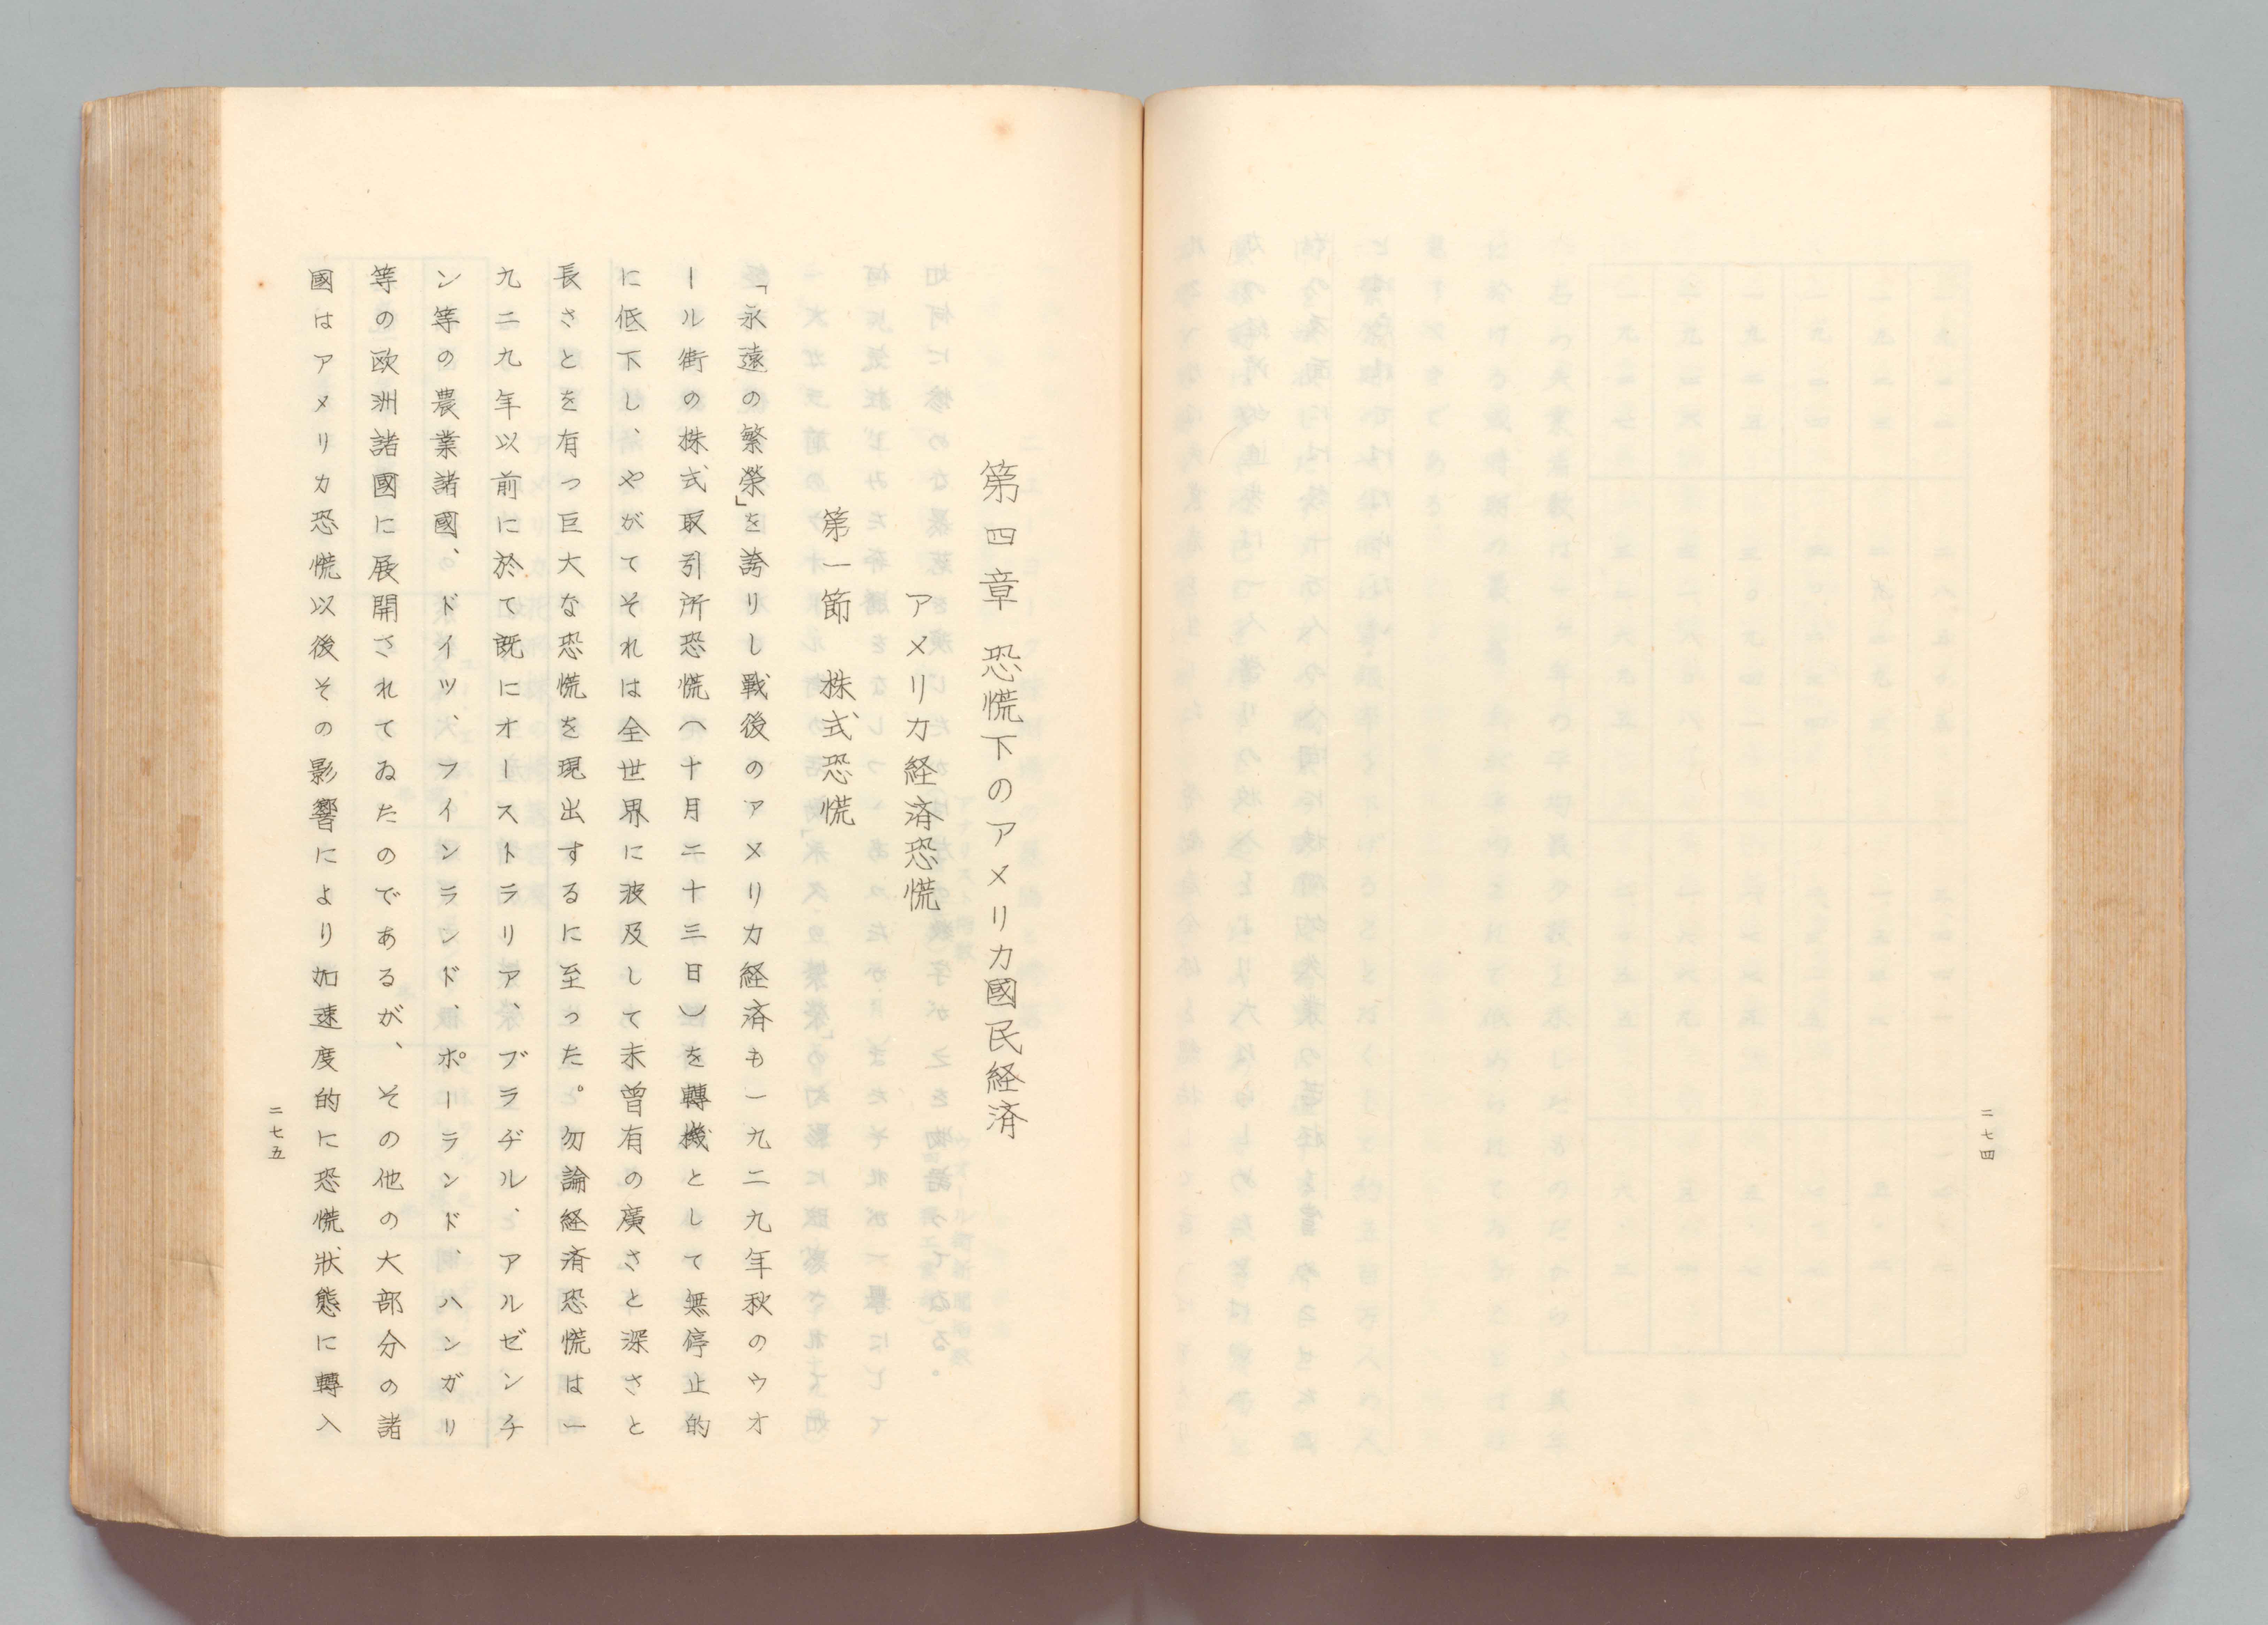 二七四
第四章 恐慌下のアメリカ國民経済
アメリカ経済恐慌
第一節 株式恐慌
「永遠の繁榮」を誇りし戰後のアメリカ経済も一九二九年秋のウオ
ール街の株式取引所恐慌(十月二十三日)を轉機として無停止的
に低下し、やがてそれは全世界に波及して未曾有の廣さと深さと
長さとを有つ巨大な恐慌を現出するに至った。勿論経済恐慌は一
九二九年以前に於て既にオーストラリア、ブラヂル、アルゼンチ
ン等の農業諸國、ドイツ、フインランド、ポーランド、ハンガリ
等の欧洲諸國に展開されてゐたのであるが、その他の大部分の諸
國はアメリカ恐慌以後その影響により加速度的に恐慌狀態に轉入
二七五